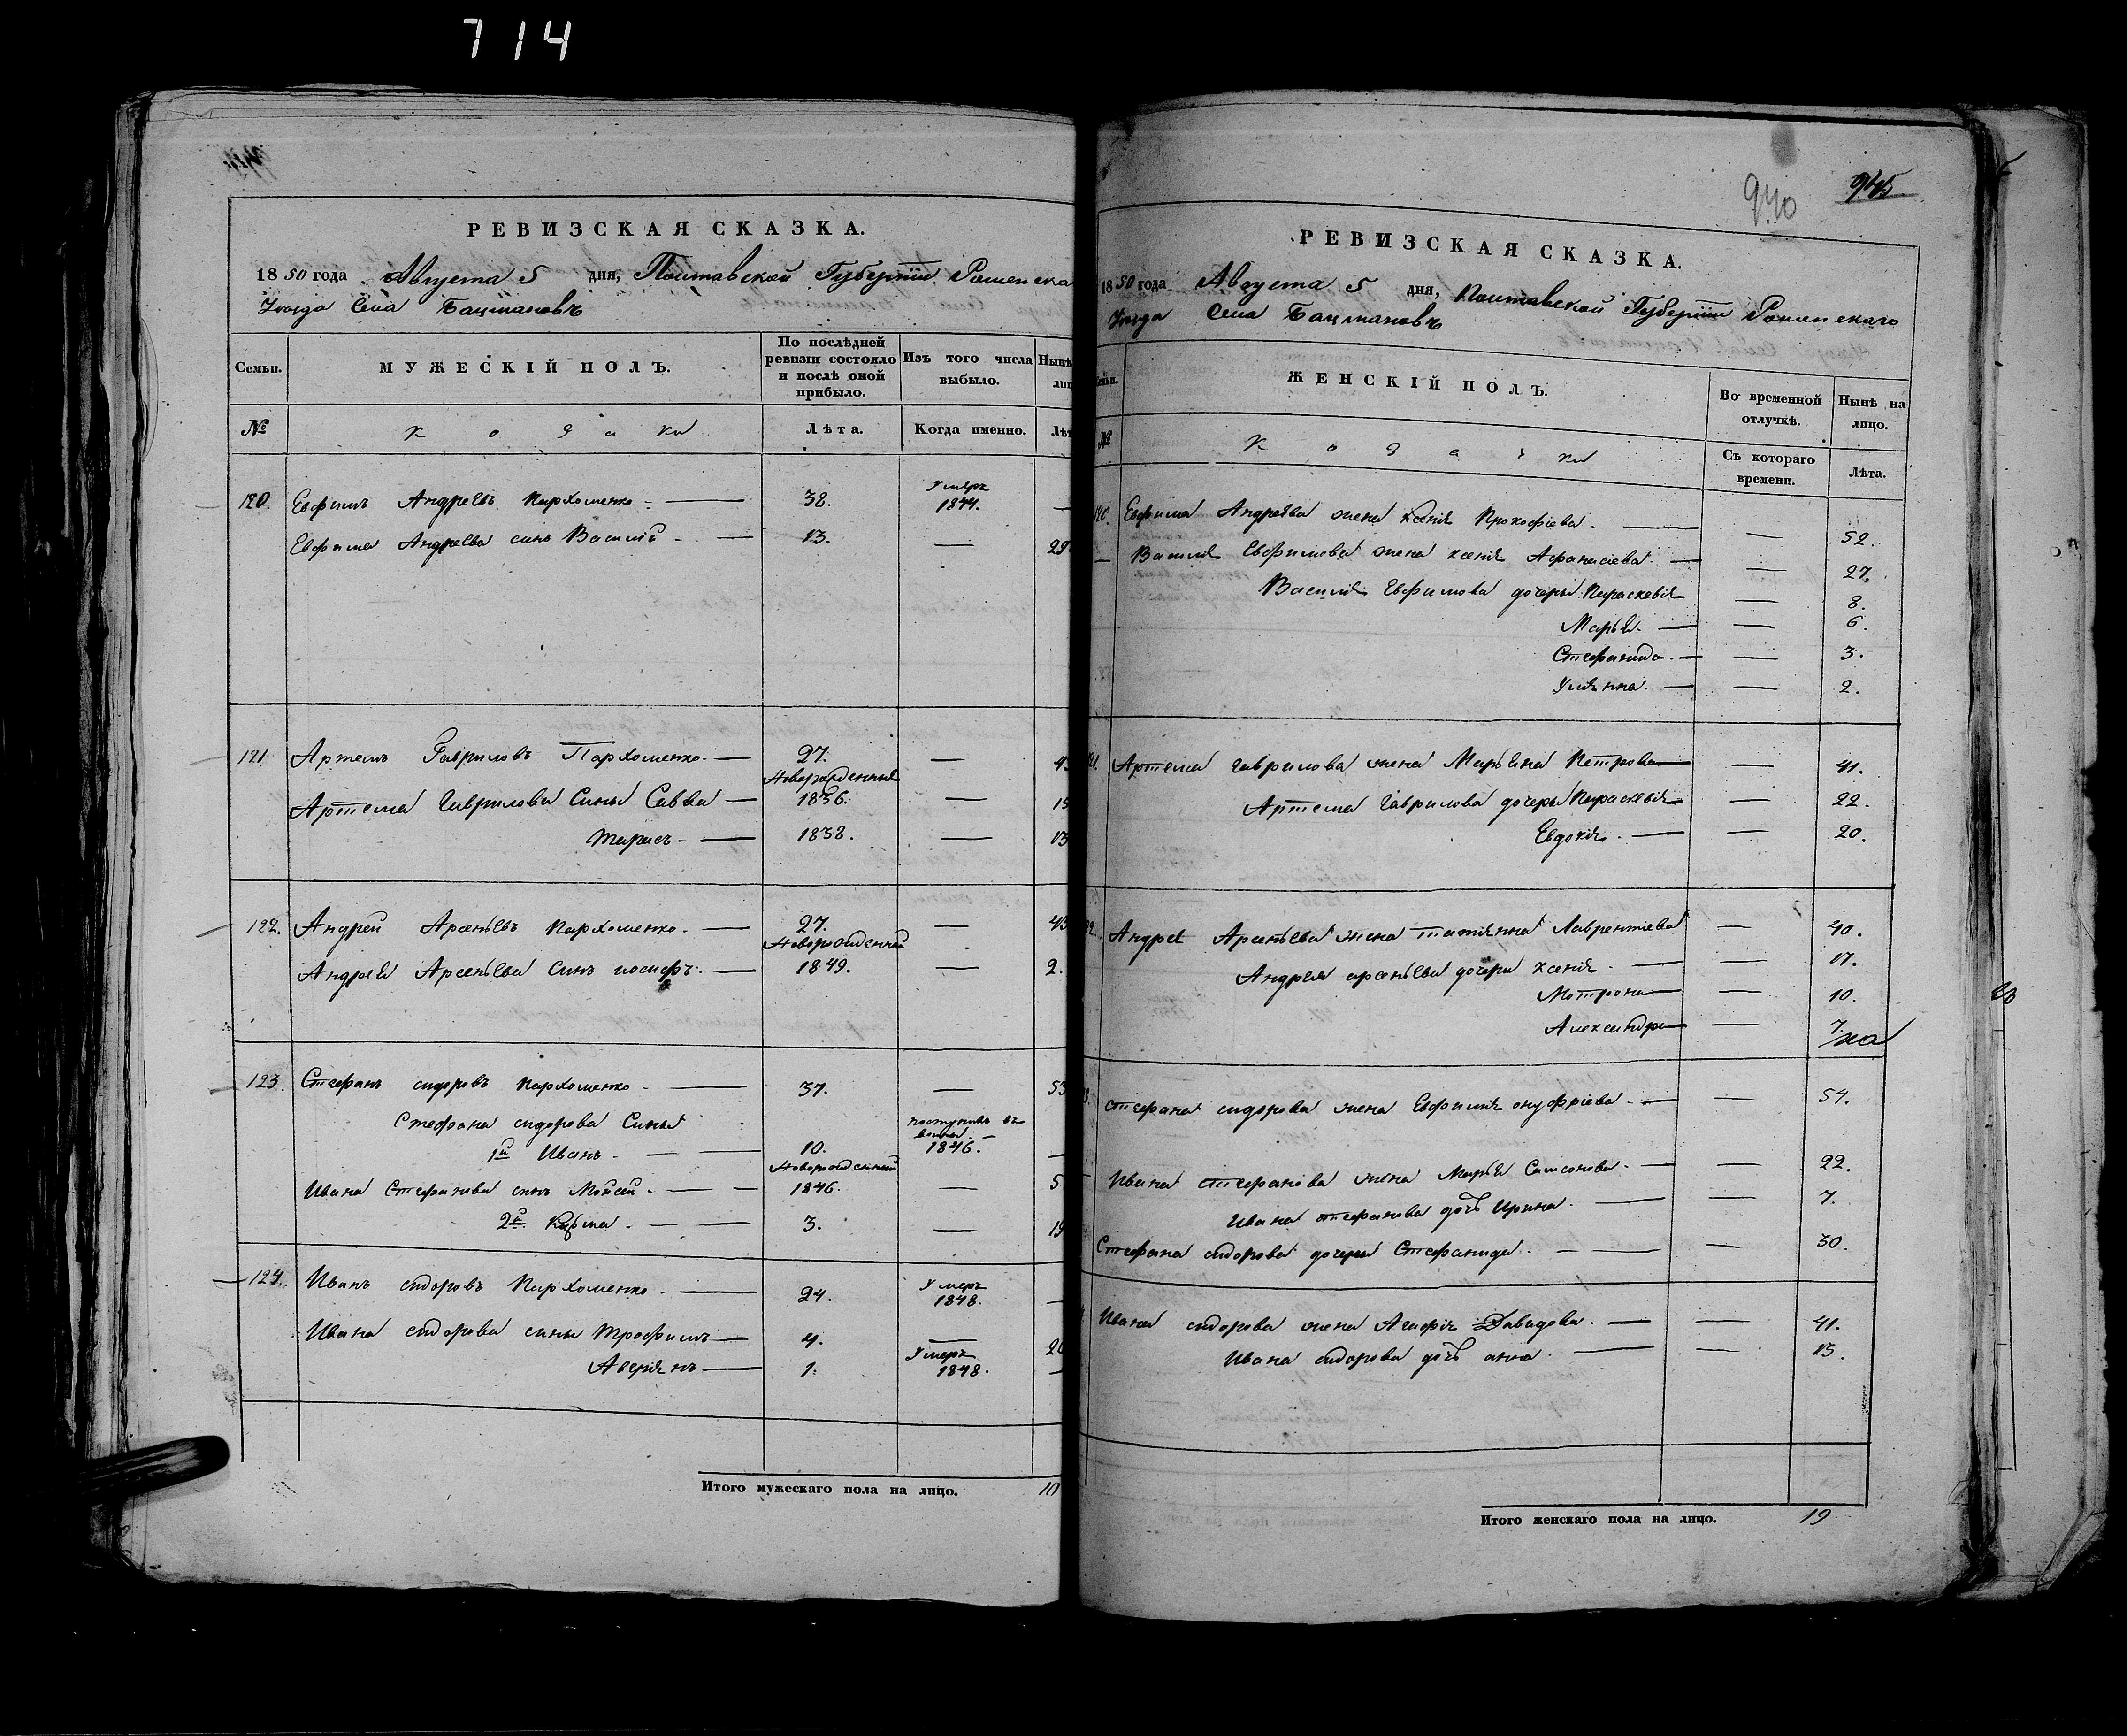 714
РЕВИЗСКАЯ СКАЗКА.
1850 года Августа 5 дня, Полтавской Губерніи Роменска
Уезда Села Бацмановъ
Семьи.
МУЖЕСКІЙ ПОЛЪ.
По послѣдней ревизіи состояло и послѣ оной прибыло.
Изъ того числа выбыло.
Нынѣ
лиц
№
Козаки
Лѣта.
Когда именно.
Лѣт
120. Евфимъ Андреевъ Пархоменко 38. Умеръ 1844.
Евфима Андреева сынъ Василій 13. — 29
121 Артемъ Гавриловъ Пархоменко 27. —
Новорожденные
Артема Гаврилова Сыны Савва 1836. — 15
Тарасъ 1838. — 13
122. Андрей Арсеньевъ Пархоменко 27. — 43
Новорожденный
Андрея Арсеньева Сынъ иосифъ 1849. — 2.
123. Стефанъ сидоровъ Пархоменко 37. — 53
Стефана сидорова Сыны
1й Иванъ 10. поступилъ въ 1846.
Новорожденный
Ивана Стефанова сынъ Мойсей 1846. — 5
2й Козма 3. — 19
124. Иванъ сидоровъ Пархоменко 24. Умеръ 1848.
Ивана сидорова сыны Трофимъ 4. — 20
Аверіянъ 1. Умеръ 1848.
Итого мужескаго пола на лицо. 10
940
945
РЕВИЗСКАЯ СКАЗКА.
1850 года Августа 5 дня, Полтавской Губерніи Роменскаго
Уезда Села Бацмановъ
Семьи.
ЖЕНСКІЙ ПОЛЪ.
Во временной отлучкѣ.
Нынѣ на лицо.
№
Козачки
Съ котораго времени.
Лѣта.
120. Евфима Андреева жена ксенія Прокофіева — 52.
Василія Евфимова жена ксенія Афанасіева — 27.
Василія Евфимова дочери Параскевія — 8.
Марья — 6.
Стефанида — 3.
Ульяна — 2.
Артема Гаврилова жена Марьяна Петрова — 41.
Артема Гаврилова дочери Параскевія — 22.
Евдокія — 20.
Андрея Арсеньева жена татіянна Лаврентіева — 40.
Андрея арсеньева дочери ксенія — 17.
Мотрона — 10.
Александра — 7.
Стефана сидорова жена Евфимія онуфріева — 54.
Ивана стефанова жена Марья Самсонова — 22.
Ивана стефанова дочь Ирина — 7.
Стефана сидорова дочери Стефанида — 30.
Ивана сидорова жена Агафія Давидова — 41.
Ивана сидорова дочь анна — 15.
Итого женскаго пола на лицо. 19